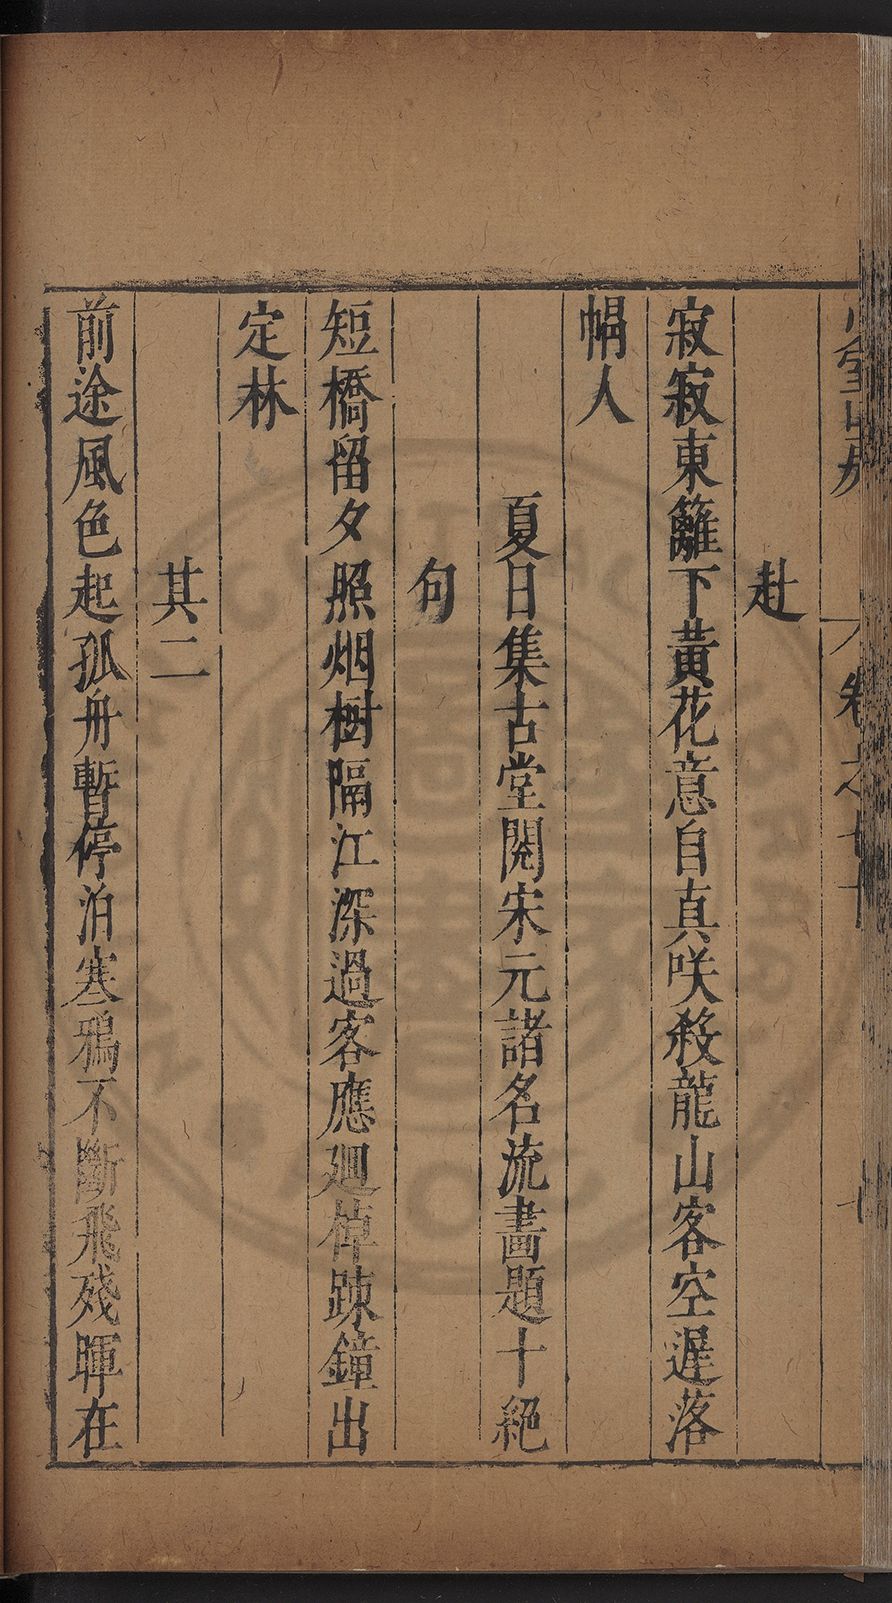 赴
寂寂東籬下黃花意自真咲殺龍山客空遲落
帽人
夏日集古堂閱宋元諸名流畫題十絕
句
短橋留夕照烟樹隔江深過客應廻棹踈鐘出
定林
其二
前途風色起孤舟暫停泊塞鴉不斷飛殘暉在